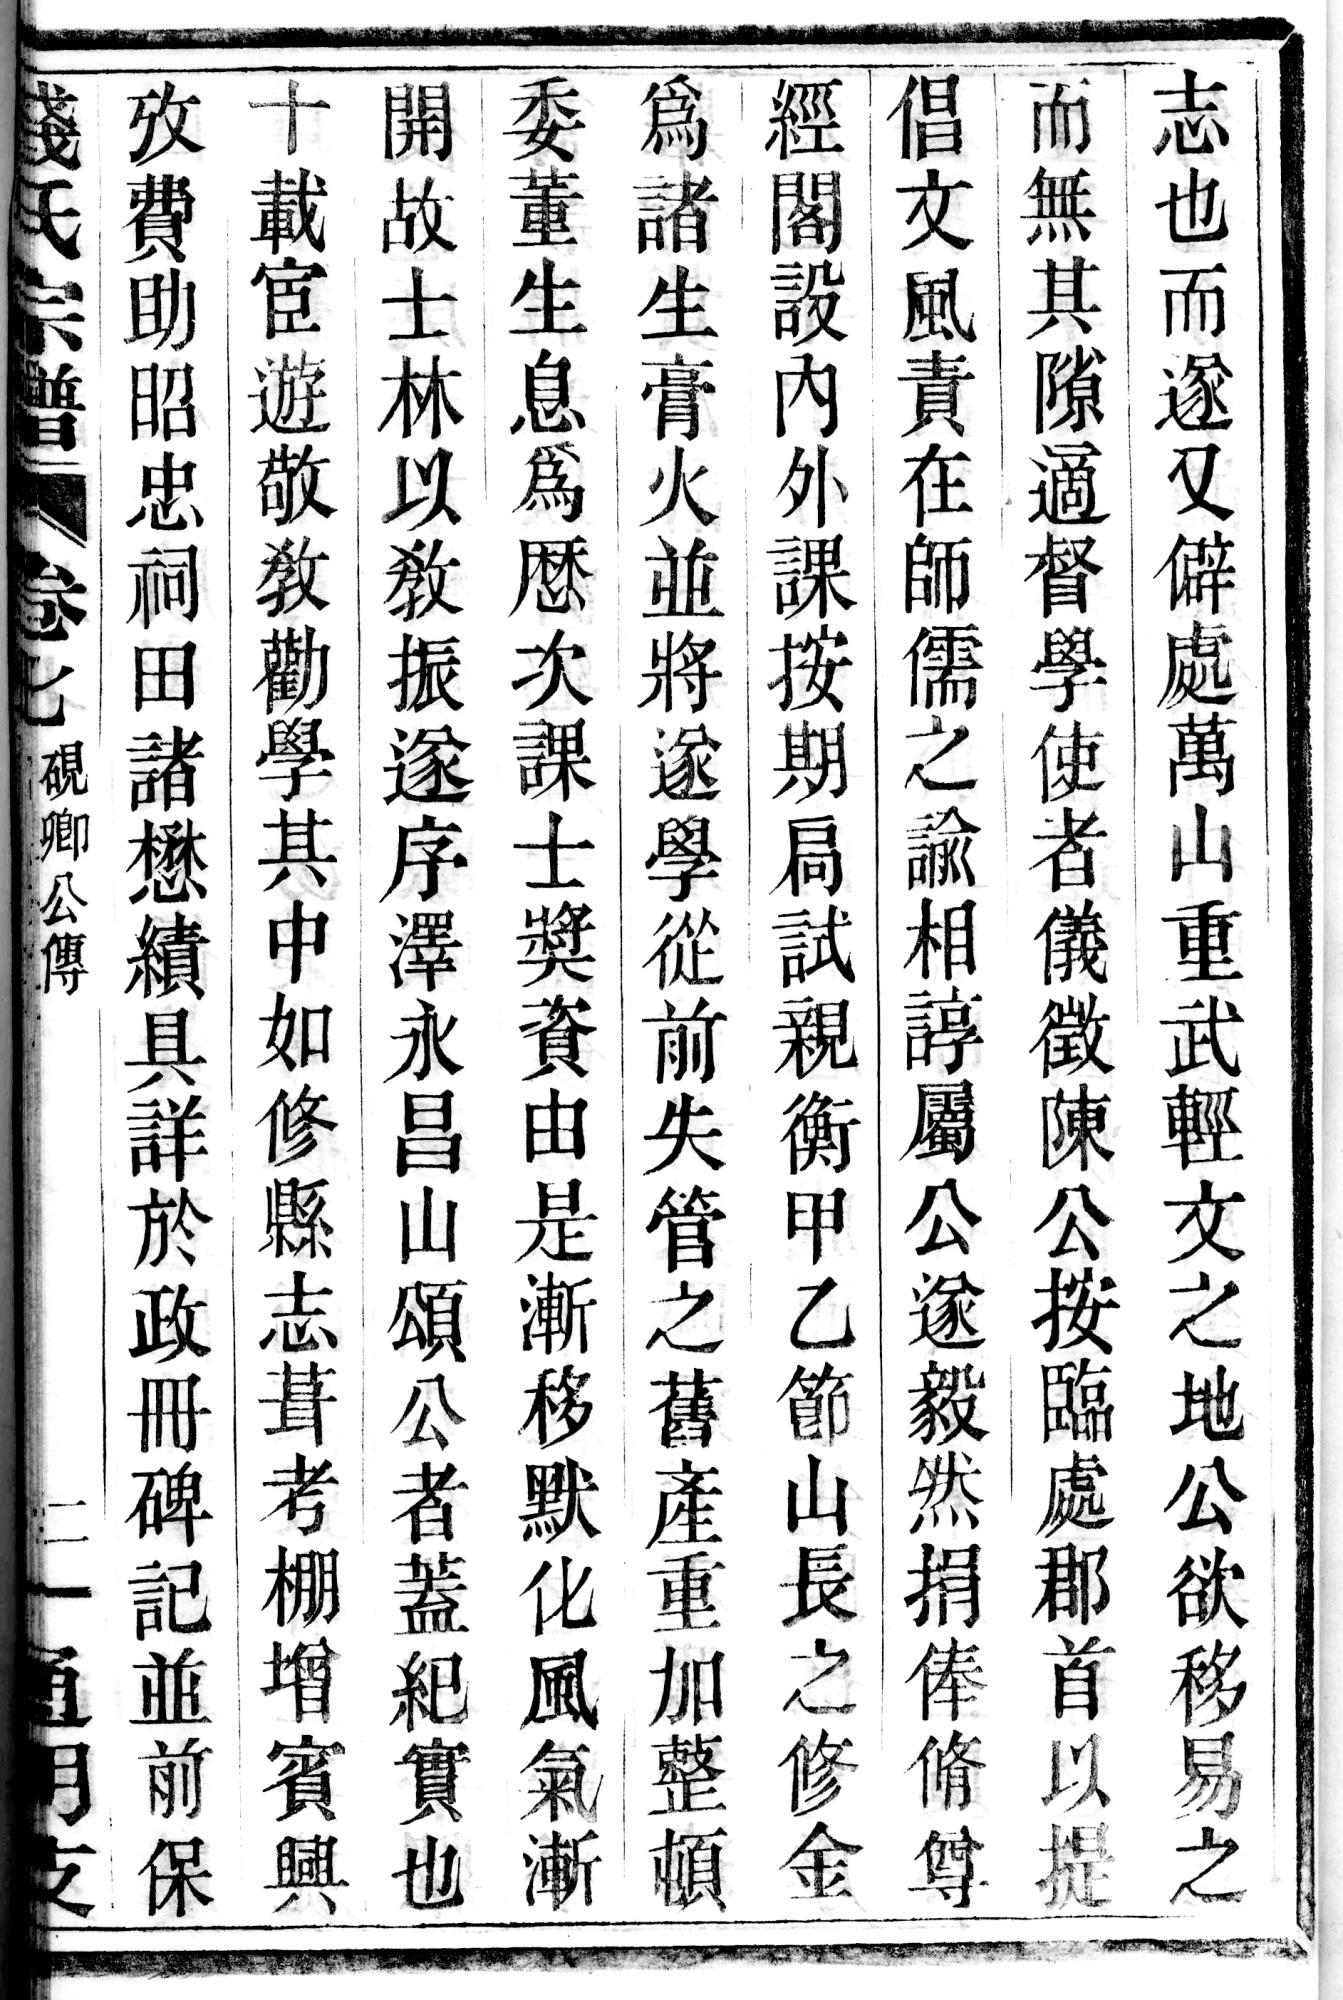 志也而遂又僻處萬山重武輕文之地公欲移易之
而無其隙適督學使者儀徵陳公按臨處郡首以提
倡文風責在師儒之諭相諄屬公遂毅然捐俸脩尊
經閣設內外課按期扃試親衡甲乙節山長之修金
爲諸生膏火並將遂學從前失管之舊產重加整頓
委董生息爲厯次課士獎資由是漸移默化風氣漸
開故士林以教振遂序澤永昌山頌公者蓋紀實也
十載宦遊敬教勸學其中如修縣志葺考棚增賓興
攷費助昭忠祠田諸懋績具詳於政冊碑記並前保
錢氏宗譜
卷七
硯卿公傳
二
通明支